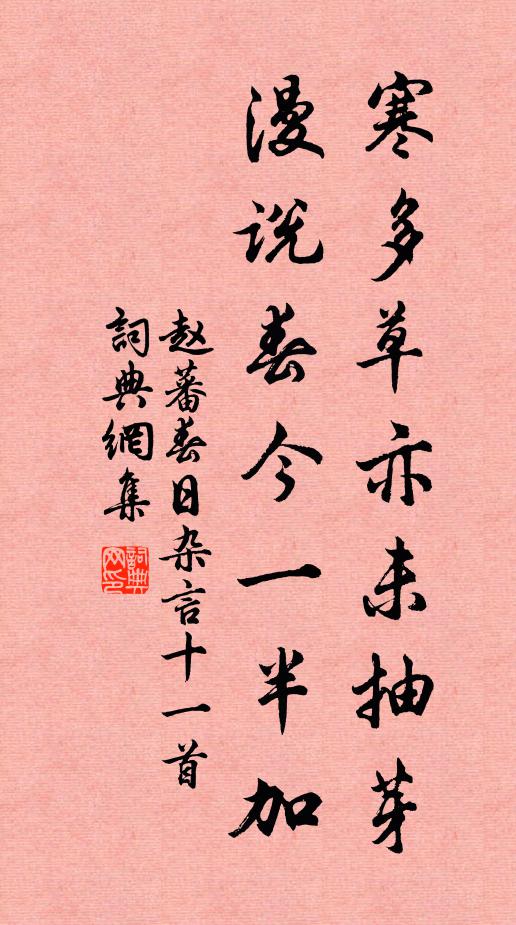 寒多草亦未抽芽
漫说春今一半加
赵蕃春日杂言十一首
詞典網集
詞典网印